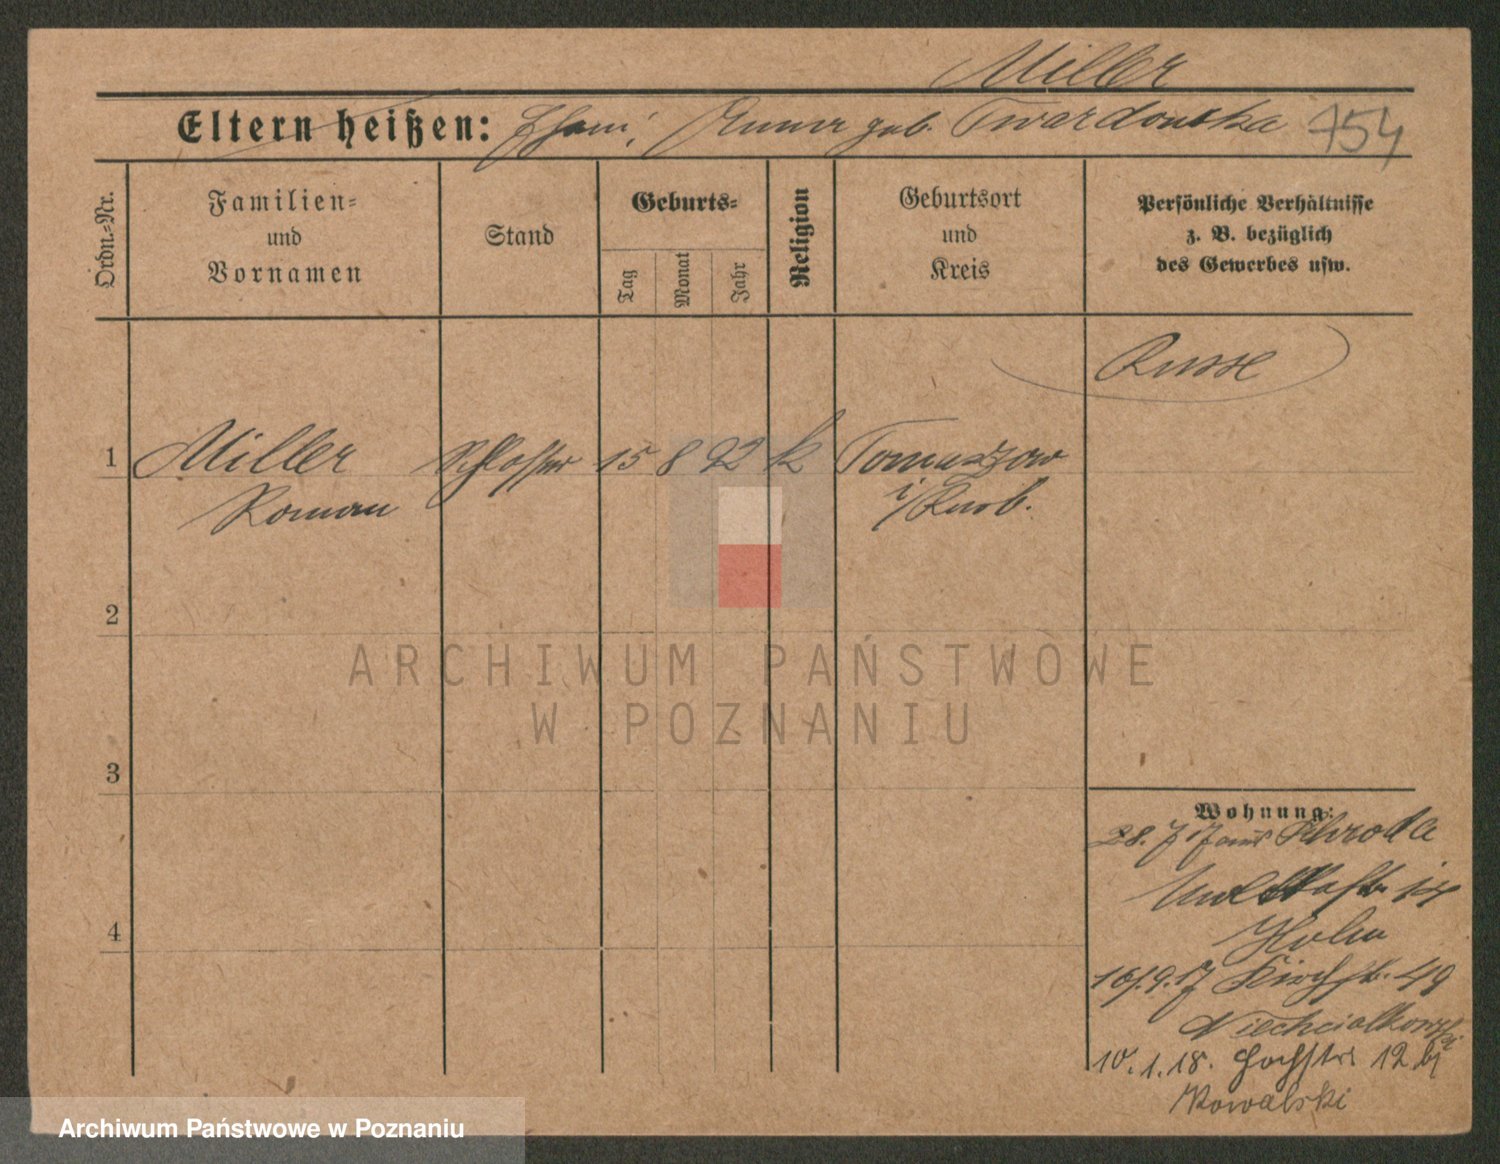 Miller
Eltern heißen: Anna geb. Twardowska 754
Ordn.-Nr.
Familien- und Vornamen
Stand
Geburts-
Tag
Monat
Jahr
Religion
Geburtsort und Kreis
Persönliche Verhältnisse z. B. bezüglich des Gewerbes usw.
Russe
1 Miller Schlosser 15 8 92 k Tomaszow
Roman i/Russl.
2
ARCHIWUM PAŃSTWOWE
W POZNANIU
3
Wohnung:
28. 7 17 aus Schroda
14
4
16.9.17 Kirchstr. 49
Niechcialkowski
10.1.18. Hochstr 12 bj
Kowalski
Archiwum Państwowe w Poznaniu